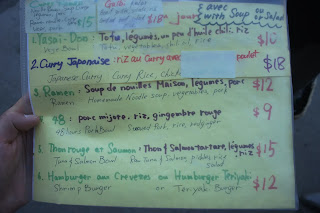 $15
$18
avec Soup
ou
Salad
1. Yasai-Don : Tofu, légumes, un peu d'huile chili, riz $10
Vege Bowl Tofu, vegetables, chili oil rice
2. Curry Japonaise : riz au Curry avec poulet $18
Japanese Curry Curry Rice,
3. Ramen: Soup de nouilles Maison, légumes, porc $12
Ramen Homemade Noodle soup, vegetables, pork
4. 48: porc mijoté, riz, gingembre rouge $9
rice, red ginger
5. Thon rouge et Saumon: Thon & Salmon tartare, légumes riz $15
Tuna & Salmon Bowl Raw Tuna & Salmon, rice
6. Hamburger aux Crevettes ou Humburger Teriyaki $12
Shrimp Burger or Teriyaki Burger